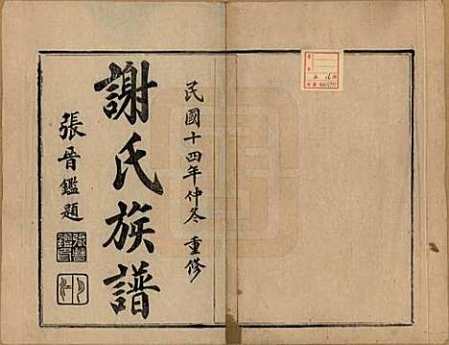 民國十四年仲冬 重修
謝氏族譜
張晉鑑題